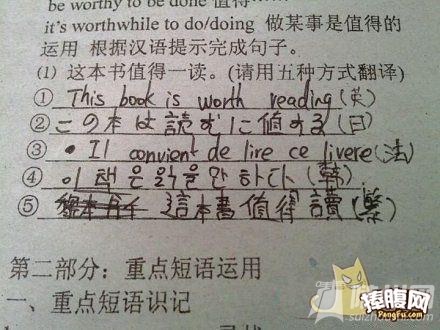 be worthy to be done 值得……
it's worthwhile to do/doing 做某事是值得的
运用 根据汉语提示完成句子。
(1) 这本书值得一读。(请用五种方式翻译)
① This book is worth reading (英)
② この本は読むに値する (日)
③ • Il convient de lire ce livere (法)
④ 이 책은 읽을만 하다 (韓)
⑤ 這本書值得讀 (繁)
第二部分：重点短语运用
一、重点短语识记
捧腹网
PengFu.com